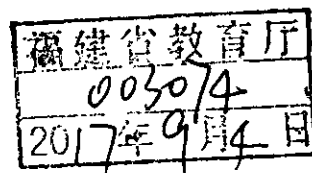 福建省教育厅
003074
2017年9月4日